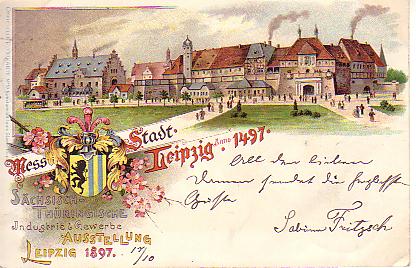 Mess Stadt.
Leipzig Anno 1497.
SÄCHSISCH-
THÜRINGISCHE
Industrie & Gewerbe
AUSSTELLUNG
LEIPZIG 1897.
17/10
All den lieben
Damen sendet die herzlichsten
Grüsse
Sabine Fritzsch